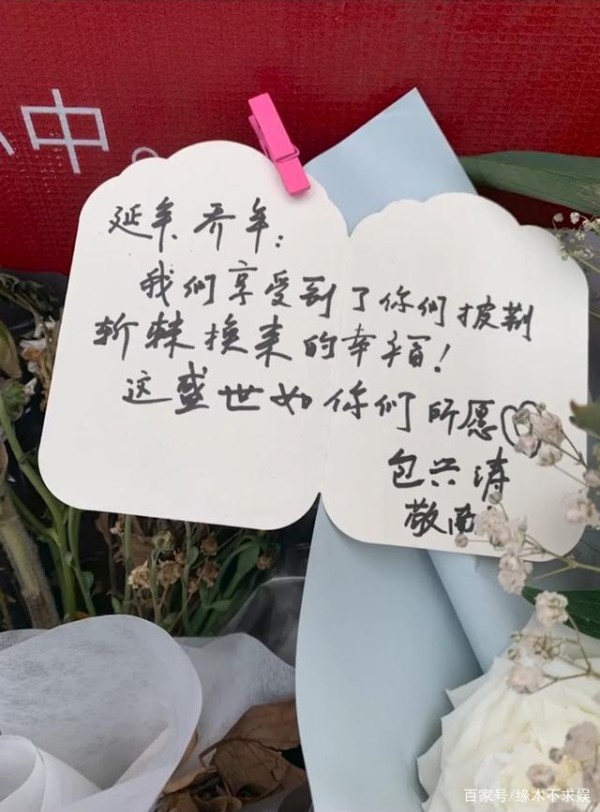 心中。
延年 乔年：
我们享受到了你们披荆
斩棘换来的幸福！
这盛世如你们所愿♡
包兴涛
敬
百家号/缘木不求娱